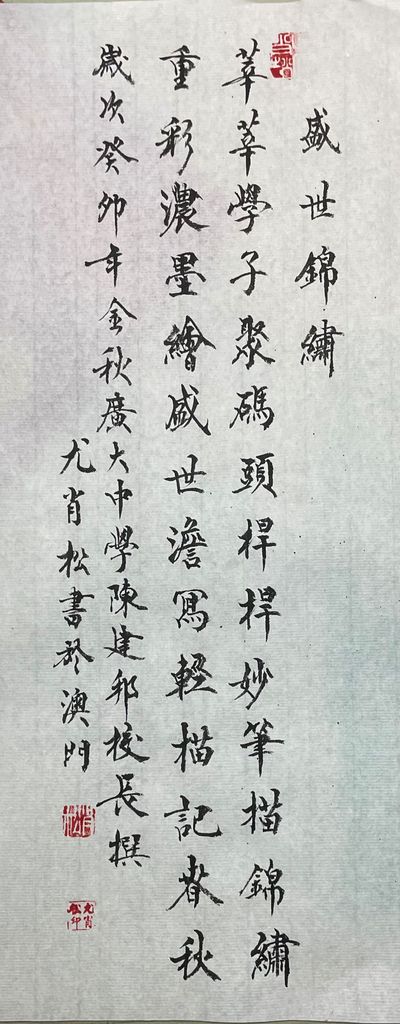 盛世錦繡
莘莘學子聚碼頭桿桿妙筆描錦繡
重彩濃墨繪盛世澹寫輕描記春秋
歲次癸卯年金秋廣大中學陳建邦校長撰
尤肖松書於澳門
尤肖松印